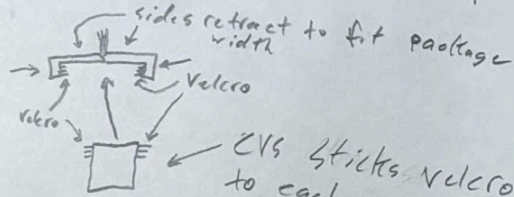 sides retract to fit package
width
velcro
velcro
CVS sticks velcro
to each